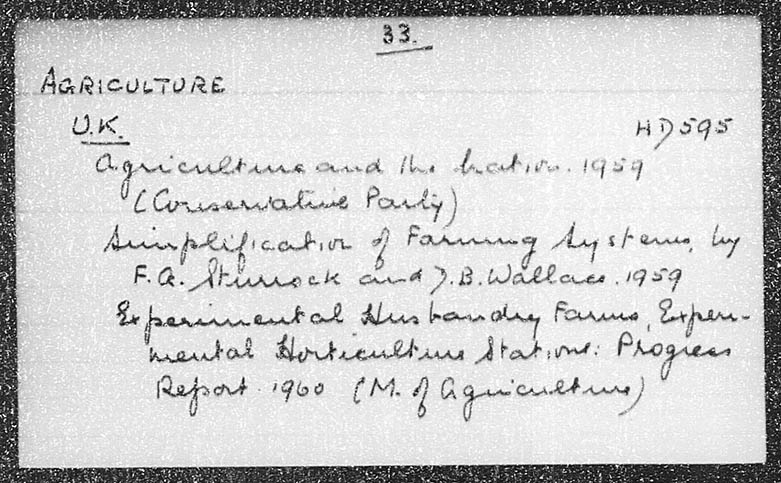 33.
AGRICULTURE
U.K.
HD595
Agriculture and the Nation. 1959
(Conservative Party)
Simplification of Farming Systems, by
F.A. Sturrock and D.B. Wallace. 1959
Experimental Husbandry Farms, Experi-
mental Horticulture Stations: Progress
Report. 1960 (M. of Agriculture)